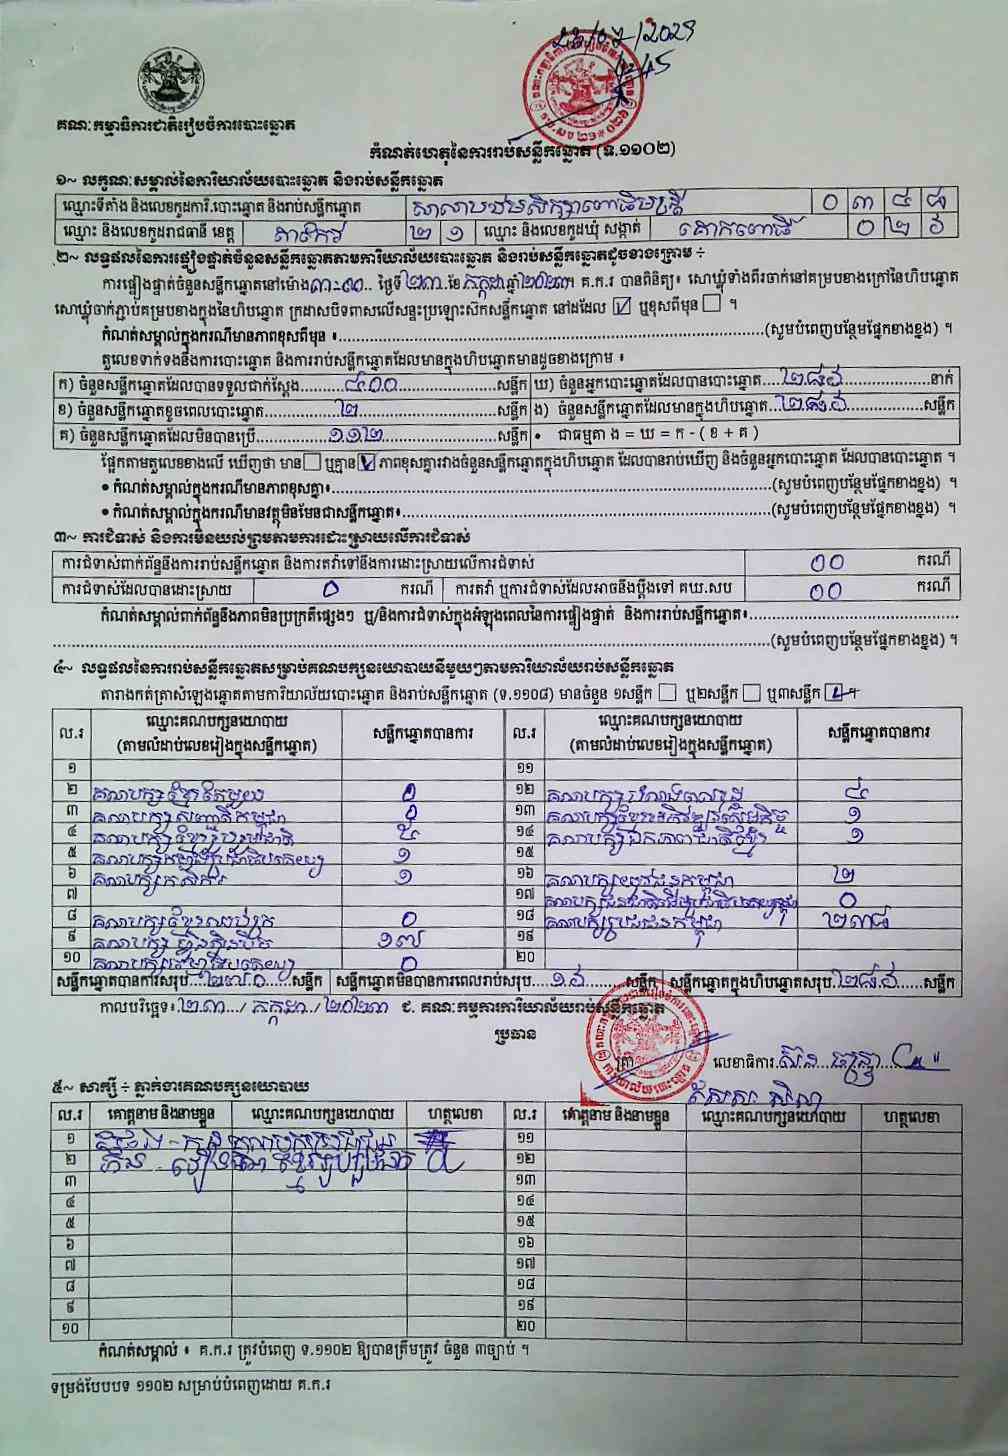 គណៈកម្មាធិការជាតិរៀបចំការបោះឆ្នោត
កំណត់ហេតុនៃការរាប់សន្លឹកឆ្នោត (ទ.១១០២)
១~ លក្ខណៈសម្គាល់នៃការិយាល័យបោះឆ្នោត និងរាប់សន្លឹកឆ្នោត
ឈ្មោះទីតាំង និងលេខកូដការិ.បោះឆ្នោត និងរាប់សន្លឹកឆ្នោត ០ ៣ ៥ ៨
ឈ្មោះ និងលេខកូដរាជធានី ខេត្ត តាកែវ ២ ១ ឈ្មោះ និងលេខកូដឃុំ សង្កាត់ គោកពោធិ៍ ០ ២ ៦
២~ លទ្ធផលនៃការផ្ទៀងផ្ទាត់ចំនួនសន្លឹកឆ្នោតតាមការិយាល័យបោះឆ្នោត និងរាប់សន្លឹកឆ្នោតដូចខាងក្រោម ÷
ការផ្ទៀងផ្ទាត់ចំនួនសន្លឹកឆ្នោតនៅម៉ោង ៣:០០ ថ្ងៃទី ២៣ ខែ កក្កដា ឆ្នាំ ២០២៣។ គ.ក.រ បានពិនិត្យ៖ សោឃ្លុំទាំងពីរចាក់នៅគម្របខាងក្រៅនៃហិបឆ្នោត
សោឃ្លុំចាក់ភ្ជាប់គម្របខាងក្នុងនៃហិបឆ្នោត ក្រដាសបិទពាសលើសន្ទះប្រឡោះស៊កសន្លឹកឆ្នោត នៅដដែល ☑ ឬខុសពីមុន ☐ ។
កំណត់សម្គាល់ក្នុងករណីមានភាពខុសពីមុន ៖ (សូមបំពេញបន្ថែមផ្នែកខាងខ្នង) ។
តួលេខទាក់ទងនឹងការបោះឆ្នោត និងការរាប់សន្លឹកឆ្នោតដែលមានក្នុងហិបឆ្នោតមានដូចខាងក្រោម ៖
ក) ចំនួនសន្លឹកឆ្នោតដែលបានទទួលជាក់ស្តែង ៤០០ សន្លឹក ឃ) ចំនួនអ្នកបោះឆ្នោតដែលបានបោះឆ្នោត ២៨៦ នាក់
ខ) ចំនួនសន្លឹកឆ្នោតខូចពេលបោះឆ្នោត ២ សន្លឹក ង) ចំនួនសន្លឹកឆ្នោតដែលមានក្នុងហិបឆ្នោត ២៨៦ សន្លឹក
គ) ចំនួនសន្លឹកឆ្នោតដែលមិនបានប្រើ ១១២ សន្លឹក • ជាធម្មតា ង = ឃ = ក - ( ខ + គ )
ផ្អែកតាមតួលេខខាងលើ ឃើញថា មាន ☐ ឬគ្មាន ☑ ភាពខុសគ្នារវាងចំនួនសន្លឹកឆ្នោតក្នុងហិបឆ្នោត ដែលបានរាប់ឃើញ និងចំនួនអ្នកបោះឆ្នោត ដែលបានបោះឆ្នោត ។
• កំណត់សម្គាល់ក្នុងករណីមានភាពខុសគ្នា៖ (សូមបំពេញបន្ថែមផ្នែកខាងខ្នង) ។
• កំណត់សម្គាល់ក្នុងករណីមានវត្ថុមិនមែនជាសន្លឹកឆ្នោត៖ (សូមបំពេញបន្ថែមផ្នែកខាងខ្នង) ។
៣~ ការជំទាស់ និងការមិនយល់ព្រមតាមការដោះស្រាយលើការជំទាស់
ការជំទាស់ពាក់ព័ន្ធនឹងការរាប់សន្លឹកឆ្នោត និងការតវ៉ាទៅនឹងការដោះស្រាយលើការជំទាស់ ០០ ករណី
ការជំទាស់ដែលបានដោះស្រាយ ០ ករណី ការតវ៉ា ឬការជំទាស់ដែលអាចនឹងប្តឹងទៅ គឃ.សប ០០ ករណី
កំណត់សម្គាល់ពាក់ព័ន្ធនឹងភាពមិនប្រក្រតីផ្សេងៗ ឬ/និងការជំទាស់ក្នុងអំឡុងពេលនៃការផ្ទៀងផ្ទាត់ និងការរាប់សន្លឹកឆ្នោត៖
(សូមបំពេញបន្ថែមផ្នែកខាងខ្នង) ។
៤~ លទ្ធផលនៃការរាប់សន្លឹកឆ្នោតសម្រាប់គណបក្សនយោបាយនីមួយៗតាមការិយាល័យរាប់សន្លឹកឆ្នោត
តារាងកត់ត្រាសំឡេងឆ្នោតតាមការិយាល័យបោះឆ្នោត និងរាប់សន្លឹកឆ្នោត (ទ.១១០៨) មានចំនួន ១សន្លឹក ☐ ឬ២សន្លឹក ☐ ឬ៣សន្លឹក ☑ ។
ល.រ ឈ្មោះគណបក្សនយោបាយ (តាមលំដាប់លេខរៀងក្នុងសន្លឹកឆ្នោត) សន្លឹកឆ្នោតបានការ ល.រ ឈ្មោះគណបក្សនយោបាយ (តាមលំដាប់លេខរៀងក្នុងសន្លឹកឆ្នោត) សន្លឹកឆ្នោតបានការ
១ ១១
២ គណបក្សខ្មែរតែមួយ ០ ១២ គណបក្ស ៤
៣ គណបក្ស កម្ពុជា ០ ១៣ គណបក្សខ្មែរអភិវឌ្ឍន៍សេដ្ឋកិច្ច ១
៤ គណបក្សខ្មែររួបរួមជាតិ ៥ ១៤ គណបក្សឯកភាពជាតិខ្មែរ ១
៥ គណបក្ស ប្រជាធិបតេយ្យ ១ ១៥
៦ គណបក្សកសិករ ១ ១៦ គណបក្សយុវជនកម្ពុជា ២
៧ ១៧ ០
៨ គណបក្សខ្មែរ ០ ១៨ គណបក្សប្រជាជនកម្ពុជា ២៣៨
៩ គណបក្សហ៊្វុនស៊ិនប៉ិច ១៧ ១៩
១០ គណបក្ស ០ ២០
សន្លឹកឆ្នោតបានការសរុប ២៧០ សន្លឹក សន្លឹកឆ្នោតមិនបានការពេលរាប់សរុប ១៦ សន្លឹក សន្លឹកឆ្នោតក្នុងហិបឆ្នោតសរុប ២៨៦ សន្លឹក
កាលបរិច្ឆេទ៖ ២៣ / កក្កដា / ២០២៣ ជ. គណៈកម្មការការិយាល័យរាប់សន្លឹកឆ្នោត
ប្រធាន
លេខាធិការ
៥~ សាក្សី ÷ ភ្នាក់ងារគណបក្សនយោបាយ
ល.រ គោត្តនាម និងនាមខ្លួន ឈ្មោះគណបក្សនយោបាយ ហត្ថលេខា ល.រ គោត្តនាម និងនាមខ្លួន ឈ្មោះគណបក្សនយោបាយ ហត្ថលេខា
១ ១១
២ ១២
៣ ១៣
៤ ១៤
៥ ១៥
៦ ១៦
៧ ១៧
៨ ១៨
៩ ១៩
១០ ២០
កំណត់សម្គាល់ ៖ គ.ក.រ ត្រូវបំពេញ ទ.១១០២ ឱ្យបានត្រឹមត្រូវ ចំនួន ៣ច្បាប់ ។
ទម្រង់បែបបទ ១១០២ សម្រាប់បំពេញដោយ គ.ក.រ